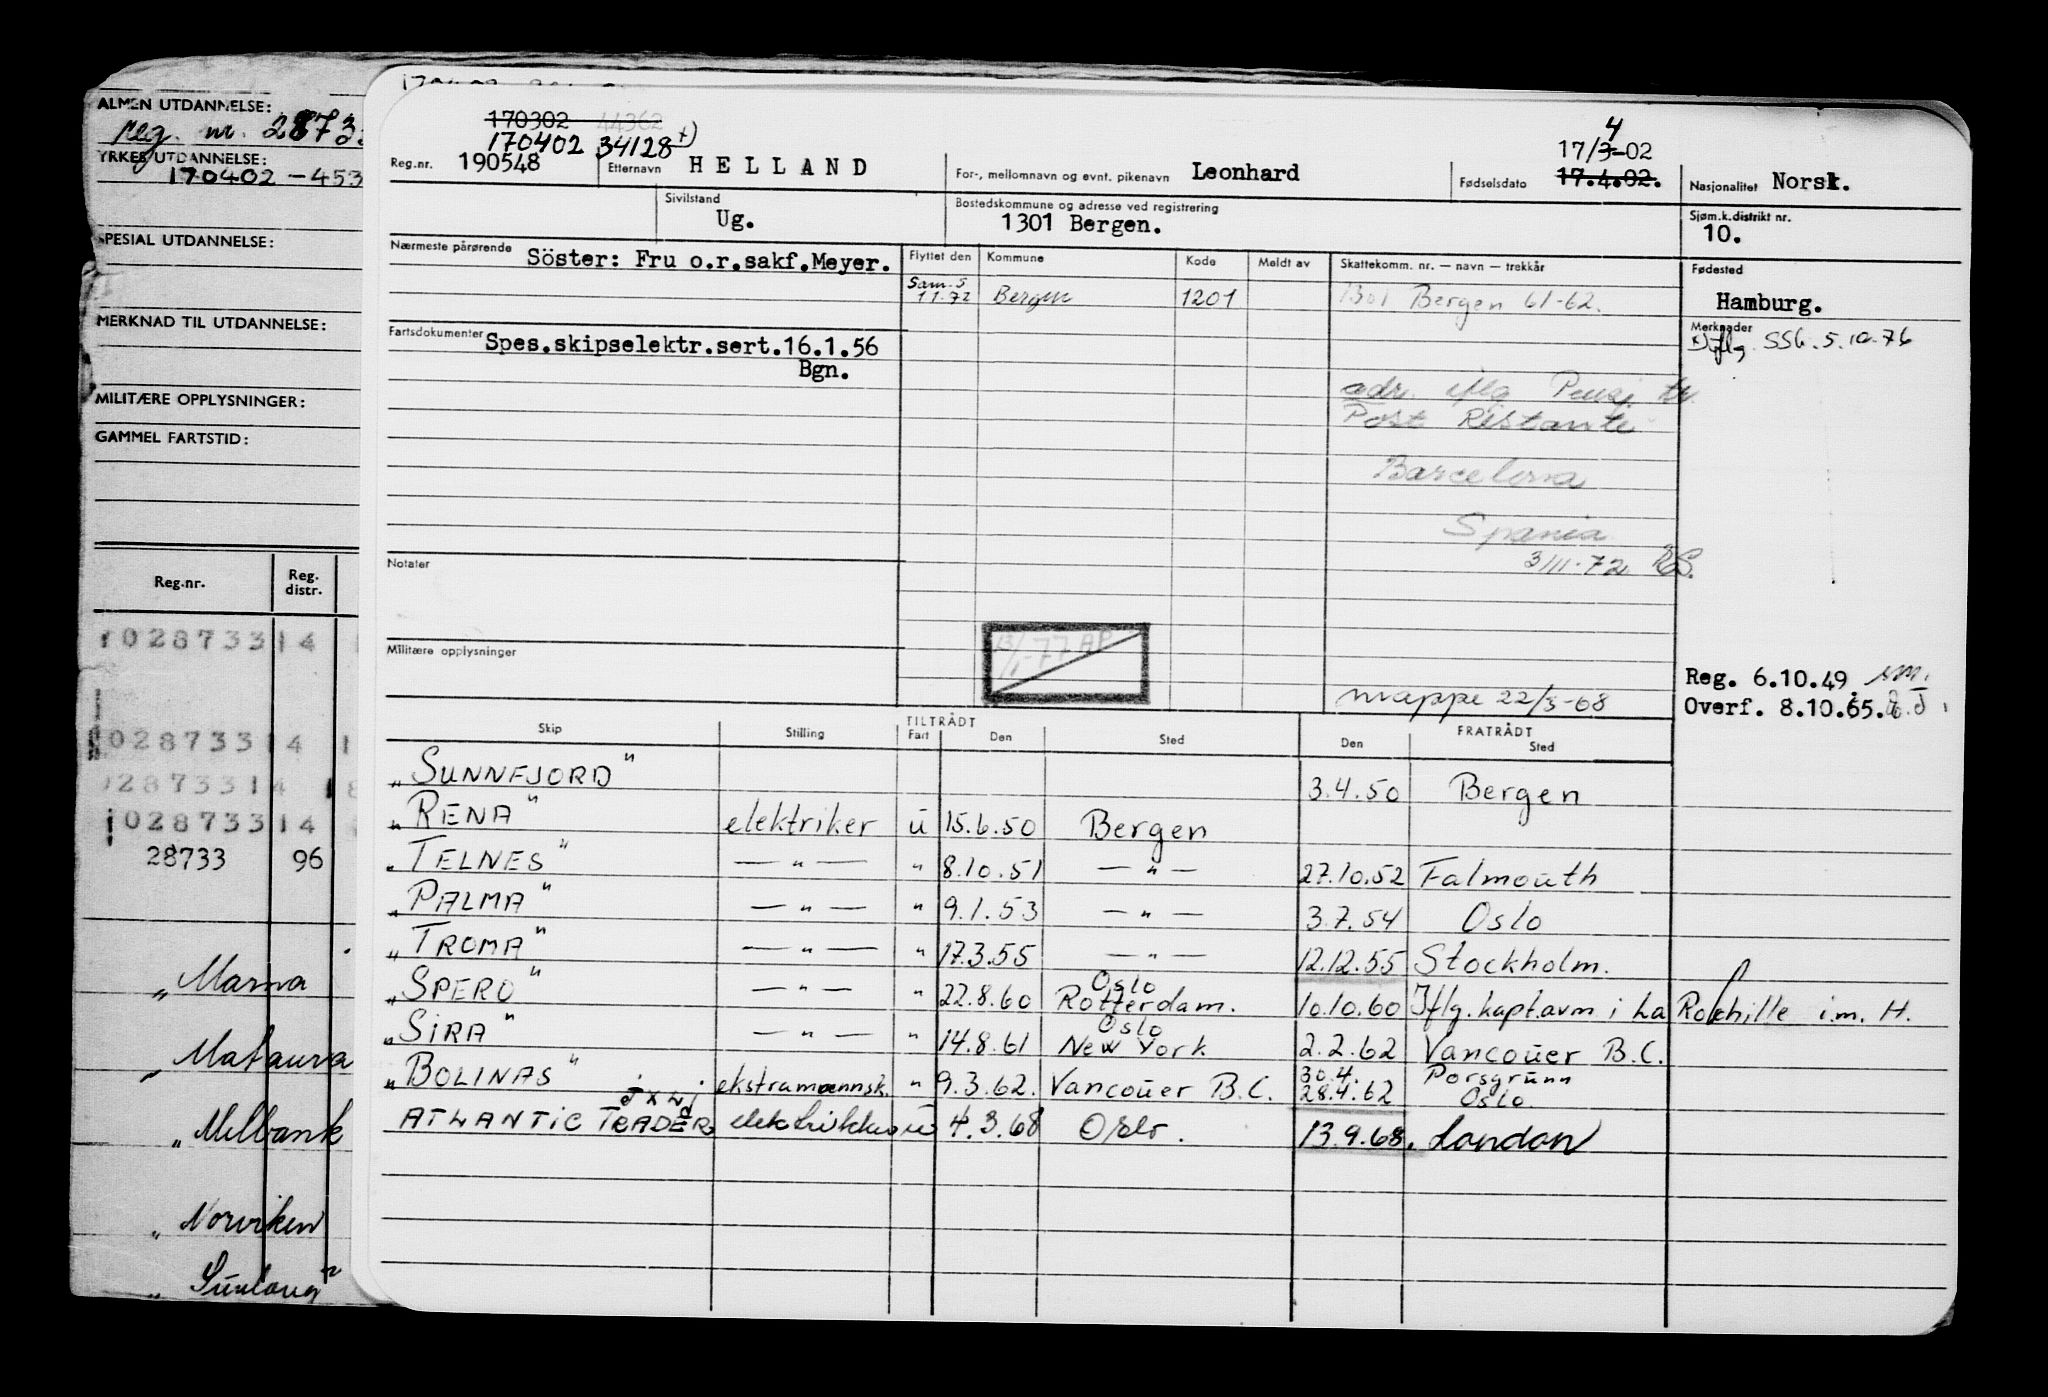 ALMEN UTDANNELSE:
reg. nr. 2873
YRKESUTDANNELSE:
170402 - 453
SPESIAL UTDANNELSE:
MERKNAD TIL UTDANNELSE:
MILITÆRE OPPLYSNINGER:
GAMMEL FARTSTID:
Reg.nr. Reg. distr.
10287331 4
0287331 4 1
02873314 18
1028733 14
28733 96
„ Marna
„ Mataura
„ Milbank
„ Norviken
„ Sunlong"
170302 44362
170402 34128 x)
Reg.nr. 190548 Etternavn HELLAND For-, mellomnavn og evnt. pikenavn Leonhard Fødselsdato 17/3-02 4 17.4.02. Nasjonalitet Norsk.
Sivilstand Ug. Bostedskommune og adresse ved registrering 1301 Bergen. Sjøm.k.distrikt nr. 10.
Nærmeste pårørende Söster: Fru o.r.sakf.Meyer. Flyttet den Kommune Kode Meldt av Skattekomm. nr. — navn — trekkår Fødested
Sam.S 1 1.72 Bergen 1201 1301 Bergen 61-62. Hamburg.
Fartsdokumenter Spes.skipselektr.sert.16.1.56 Merknader
Bgn. x) iflg. SSB. 5.10.76
adr. iflg Pensj tr.
Post Ristante
Barcelona
Spania
3/11-72
Notater
13/1-77 AP
Militære opplysninger
mappe 22/3-68
Reg. 6.10.49
Overf. 8.10.65.
Skip Stilling TILTRÅDT Fart Den Sted FRATRÅDT Den Sted
„ SUNNFJORD " 3.4.50 Bergen
„ RENA " elektriker u 15.6.50 Bergen
„ TELNES " — " — " 8.10.51 — " — 27.10.52 Falmouth
„ PALMA " — " — " 9.1.53 — " — 3.7.54 Oslo
„ TROMA " — " — " 17.3.55 — " — 12.12.55 Stockholm.
„ SPERO " — " — " 22.8.60 Oslo Rotterdam. 10.10.60 Iflg. kapt.avm i La Rochille i.m. H.
„ SIRA " — " — " 14.8.61 Oslo New York 2.2.62 Vancouver B.C.
„ BOLINAS " ekstramannsk. " 9.3.62. Vancouver B.C. 30.4. 28.4.62 Porsgrunn Oslo
JXWJ
ATLANTIC TRADER elektrikker u 4.3.68 Oslo. 13.9.68. London